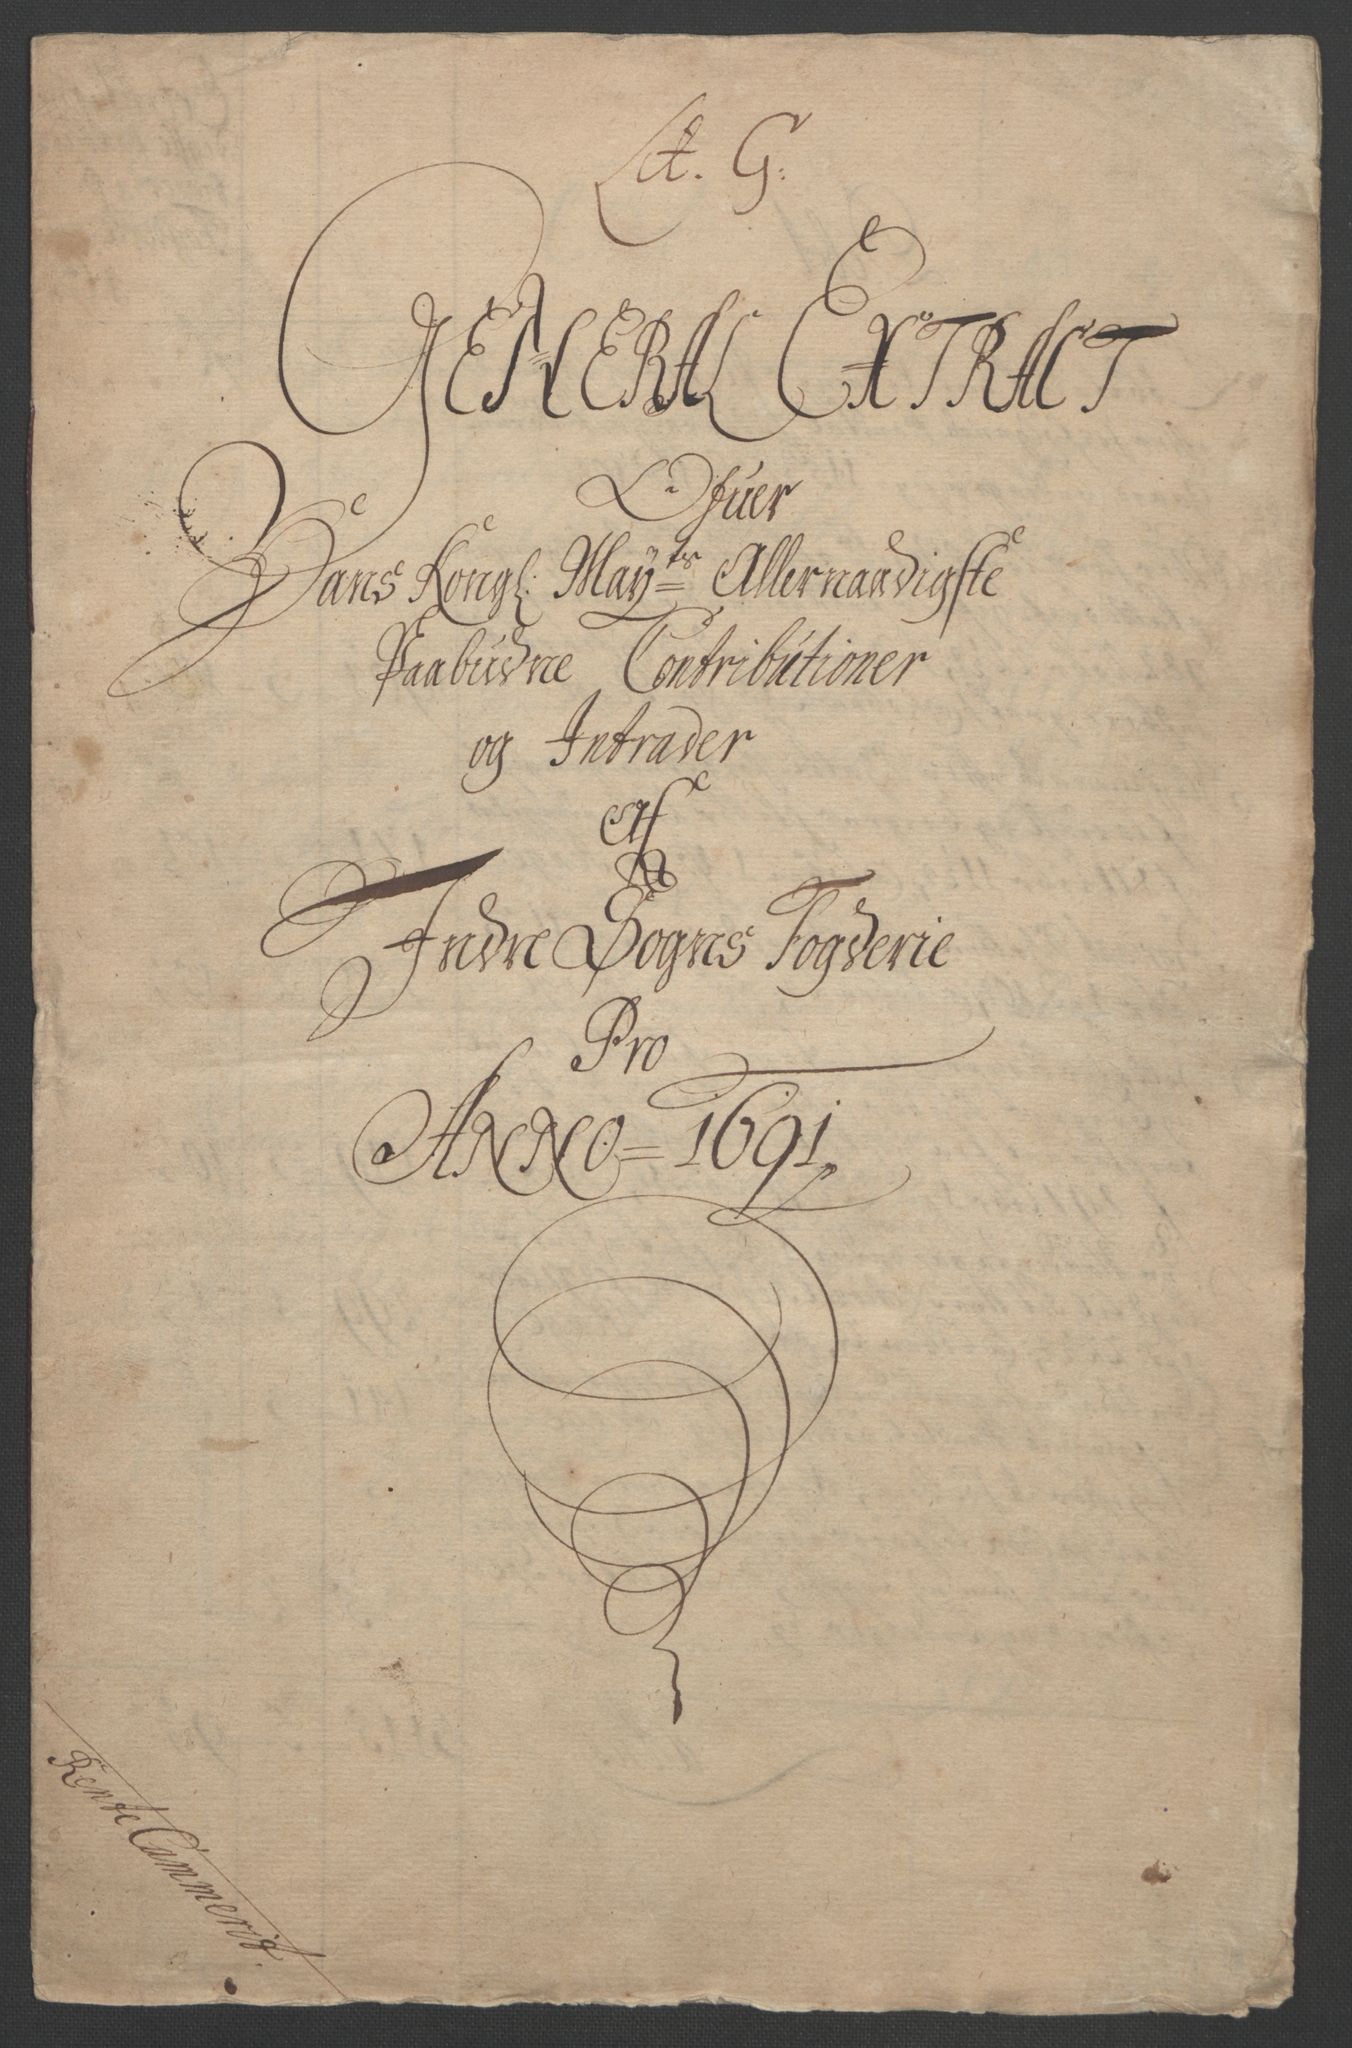 Lit. G:
GENERAL EXTRACT
Ofuer
Hans Kongl: Mayts Allernaadigste
Paabudne Contributioner
og Intrader
Af
Indre Sogns Fogderie
Pro
ANNO = 1691
Rente Cammerit.